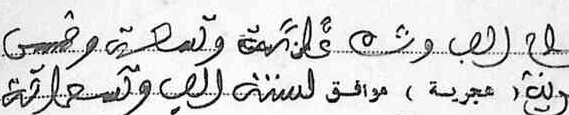 الف وثلاثمائة وتسعة وخمسين
( هجرية ) موافق لسنة الف وتسعمائة